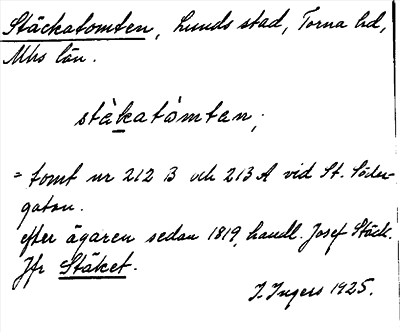 Stäckatomten, Lunds stad, Torna hd,
Mhs län.
stàkatåmtan,
= tomt nr 212 B och 213 A vid St. Söder-
gatan.
efter ägaren sedan 1819, handl. Josef Stäck.
Jfr Stäket.
I. Ingers 1925.